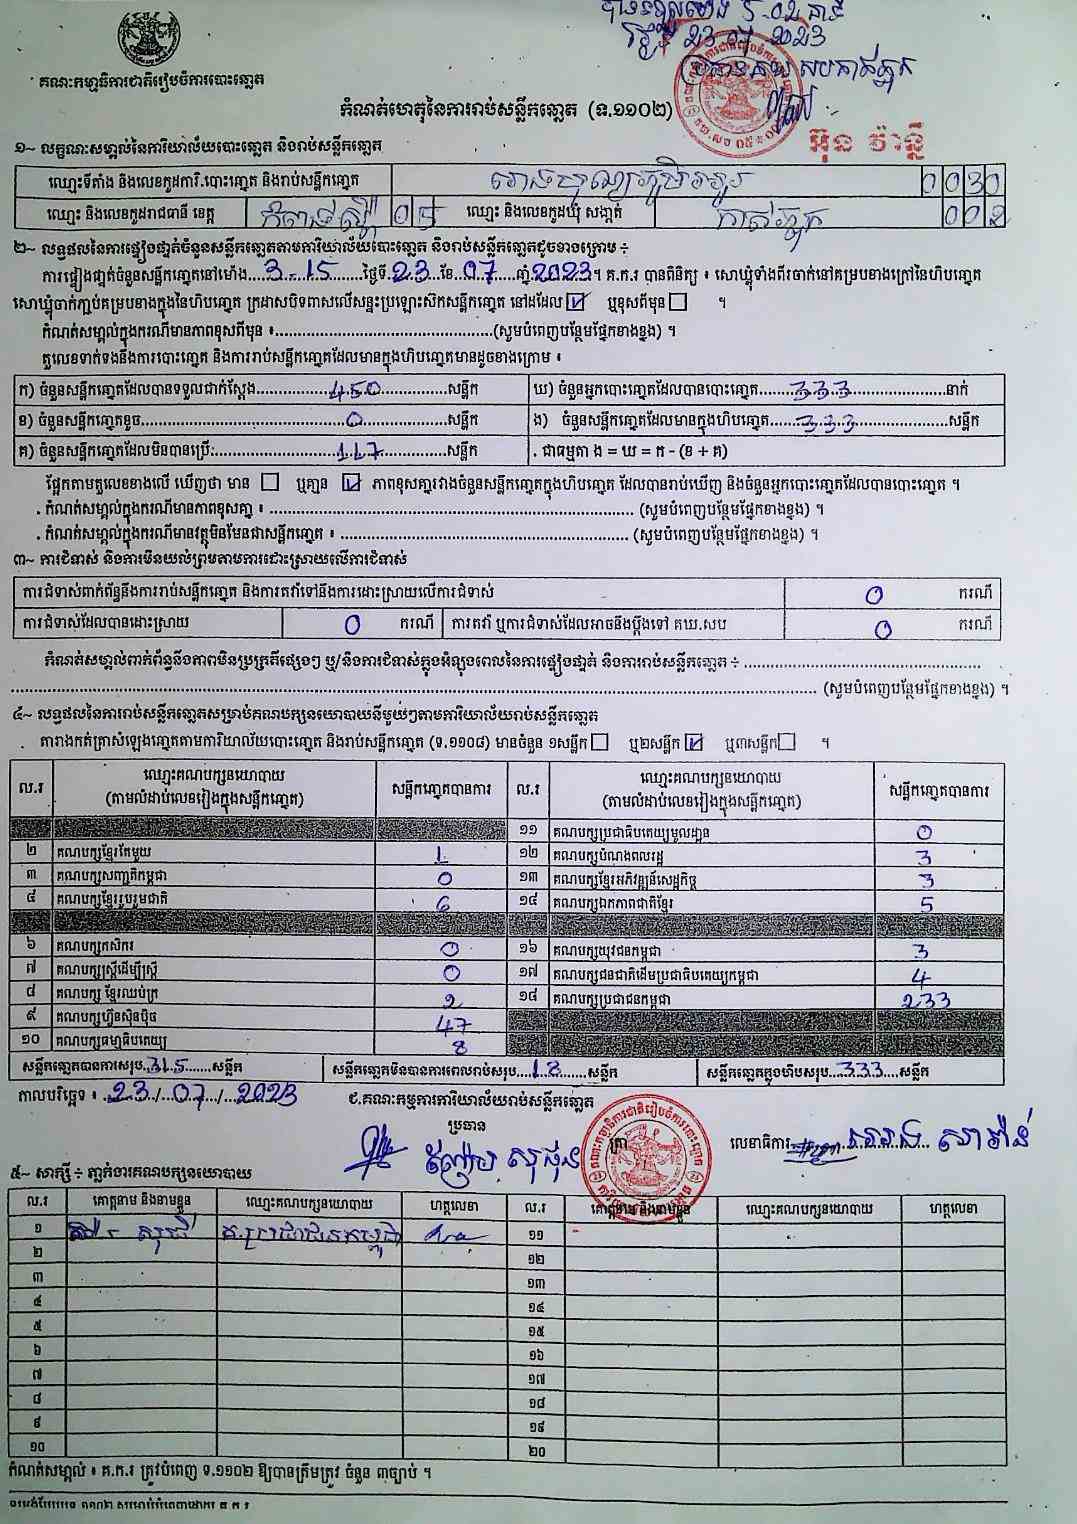 គណៈកម្មាធិការជាតិរៀបចំការបោះឆ្នោត
23 2023
កំណត់ហេតុនៃការរាប់សន្លឹកឆ្នោត (ទ.១១០២)
អ៊ុន
១~ លក្ខណៈសម្គាល់នៃការិយាល័យបោះឆ្នោត និងរាប់សន្លឹកឆ្នោត
ឈ្មោះទីតាំង និងលេខកូដការិ.បោះឆ្នោត និងរាប់សន្លឹកឆ្នោត 0030
ឈ្មោះ និងលេខកូដរាជធានី ខេត្ត កំពង់ស្ពឺ 05 ឈ្មោះ និងលេខកូដឃុំ សង្កាត់ 002
២~ លទ្ធផលនៃការផ្ទៀងផ្ទាត់ចំនួនសន្លឹកឆ្នោតតាមការិយាល័យបោះឆ្នោត និងរាប់សន្លឹកឆ្នោតដូចខាងក្រោម ÷
ការផ្ទៀងផ្ទាត់ចំនួនសន្លឹកឆ្នោតនៅម៉ោង 3-15 ថ្ងៃទី 23 ខែ 07 ឆ្នាំ 2023 ។ គ.ក.រ បានពិនិត្យ ៖ សោឃ្លុំទាំងពីរចាក់នៅគម្របខាងក្រៅនៃហិបឆ្នោត
សោឃ្លុំចាក់ភ្ជាប់គម្របខាងក្នុងនៃហិបឆ្នោត ក្រដាសបិទពាសលើសន្ទះប្រឡោះស៊កសន្លឹកឆ្នោត នៅដដែល ☑ ឬខុសពីមុន ☐ ។
កំណត់សម្គាល់ក្នុងករណីមានភាពខុសពីមុន ៖ (សូមបំពេញបន្ថែមផ្នែកខាងខ្នង) ។
តួលេខទាក់ទងនឹងការបោះឆ្នោត និងការរាប់សន្លឹកឆ្នោតដែលមានក្នុងហិបឆ្នោតមានដូចខាងក្រោម ៖
ក) ចំនួនសន្លឹកឆ្នោតដែលបានទទួលជាក់ស្ដែង 450 សន្លឹក ឃ) ចំនួនអ្នកបោះឆ្នោតដែលបានបោះឆ្នោត 333 នាក់
ខ) ចំនួនសន្លឹកឆ្នោតខូច 0 សន្លឹក ង) ចំនួនសន្លឹកឆ្នោតដែលមានក្នុងហិបឆ្នោត 333 សន្លឹក
គ) ចំនួនសន្លឹកឆ្នោតដែលមិនបានប្រើ: 117 សន្លឹក . ជាធម្មតា ង = ឃ = ក - (ខ + គ)
ផ្អែកតាមតួលេខខាងលើ ឃើញថា មាន ☐ ឬគ្មាន ☑ ភាពខុសគ្នារវាងចំនួនសន្លឹកឆ្នោតក្នុងហិបឆ្នោត ដែលបានរាប់ឃើញ និងចំនួនអ្នកបោះឆ្នោតដែលបានបោះឆ្នោត ។
. កំណត់សម្គាល់ក្នុងករណីមានភាពខុសគ្នា ៖ (សូមបំពេញបន្ថែមផ្នែកខាងខ្នង) ។
. កំណត់សម្គាល់ក្នុងករណីមានវត្ថុមិនមែនជាសន្លឹកឆ្នោត ៖ (សូមបំពេញបន្ថែមផ្នែកខាងខ្នង) ។
៣~ ការជំទាស់ និងការមិនយល់ព្រមតាមការដោះស្រាយលើការជំទាស់
ការជំទាស់ពាក់ព័ន្ធនឹងការរាប់សន្លឹកឆ្នោត និងការតវ៉ាទៅនឹងការដោះស្រាយលើការជំទាស់ 0 ករណី
ការជំទាស់ដែលបានដោះស្រាយ 0 ករណី ការតវ៉ា ឬការជំទាស់ដែលអាចនឹងប្ដឹងទៅ គឃ.សប 0 ករណី
កំណត់សម្គាល់ពាក់ព័ន្ធនឹងភាពមិនប្រក្រតីផ្សេងៗ ឬ/និងការជំទាស់ក្នុងអំឡុងពេលនៃការផ្ទៀងផ្ទាត់ និងការរាប់សន្លឹកឆ្នោត ÷
(សូមបំពេញបន្ថែមផ្នែកខាងខ្នង) ។
៤~ លទ្ធផលនៃការរាប់សន្លឹកឆ្នោតសម្រាប់គណបក្សនយោបាយនីមួយៗតាមការិយាល័យរាប់សន្លឹកឆ្នោត
តារាងកត់ត្រាសំឡេងឆ្នោតតាមការិយាល័យបោះឆ្នោត និងរាប់សន្លឹកឆ្នោត (ទ.១១០៨) មានចំនួន ១សន្លឹក ☐ ឬ២សន្លឹក ☑ ឬ៣សន្លឹក ☐ ។
ល.រ ឈ្មោះគណបក្សនយោបាយ (តាមលំដាប់លេខរៀងក្នុងសន្លឹកឆ្នោត) សន្លឹកឆ្នោតបានការ ល.រ ឈ្មោះគណបក្សនយោបាយ (តាមលំដាប់លេខរៀងក្នុងសន្លឹកឆ្នោត) សន្លឹកឆ្នោតបានការ
១១ គណបក្សប្រជាធិបតេយ្យមូលដ្ឋាន 0
២ គណបក្សខ្មែរតែមួយ 1 ១២ គណបក្សបំណងពលរដ្ឋ 3
៣ គណបក្សសញ្ជាតិកម្ពុជា 0 ១៣ គណបក្សខ្មែរអភិវឌ្ឍន៍សេដ្ឋកិច្ច 3
៤ គណបក្សខ្មែររួបរួមជាតិ 6 ១៤ គណបក្សឯកភាពជាតិខ្មែរ 5
៦ គណបក្សកសិករ 0 ១៦ គណបក្សយុវជនកម្ពុជា 3
៧ គណបក្សស្ត្រីដើម្បីស្ត្រី 0 ១៧ គណបក្សជនជាតិដើមប្រជាធិបតេយ្យកម្ពុជា 4
៨ គណបក្ស ខ្មែរឈប់ក្រ 2 ១៨ គណបក្សប្រជាជនកម្ពុជា 233
៩ គណបក្សហ៊្វុនស៊ិនប៉ិច 47
១០ គណបក្សធម្មាធិបតេយ្យ 8
សន្លឹកឆ្នោតបានការសរុប 315 សន្លឹក សន្លឹកឆ្នោតមិនបានការពេលរាប់សរុប 18 សន្លឹក សន្លឹកឆ្នោតក្នុងហិបសរុប 333 សន្លឹក
កាលបរិច្ឆេទ ៖ 23/07/2023 ៩.គណៈកម្មការការិយាល័យរាប់សន្លឹកឆ្នោត
ប្រធាន ត្រា លេខាធិការ
៥~ សាក្សី ÷ ភ្នាក់ងារគណបក្សនយោបាយ
ល.រ គោត្តនាម និងនាមខ្លួន ឈ្មោះគណបក្សនយោបាយ ហត្ថលេខា ល.រ គោត្តនាម និងនាមខ្លួន ឈ្មោះគណបក្សនយោបាយ ហត្ថលេខា
១ គ.ប្រជាជនកម្ពុជា ១១
២ ១២
៣ ១៣
៤ ១៤
៥ ១៥
៦ ១៦
៧ ១៧
៨ ១៨
៩ ១៩
១០ ២០
កំណត់សម្គាល់ ៖ គ.ក.រ ត្រូវបំពេញ ទ.១១០២ ឱ្យបានត្រឹមត្រូវ ចំនួន ៣ច្បាប់ ។